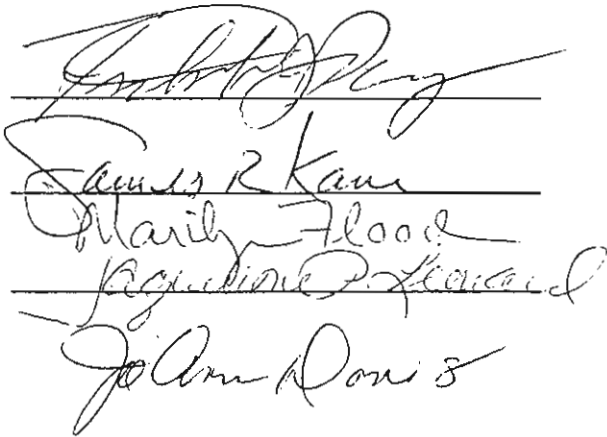 James R Kane
Marilyn Flood
Jaqueline P. Leonard
JoAnn Davis